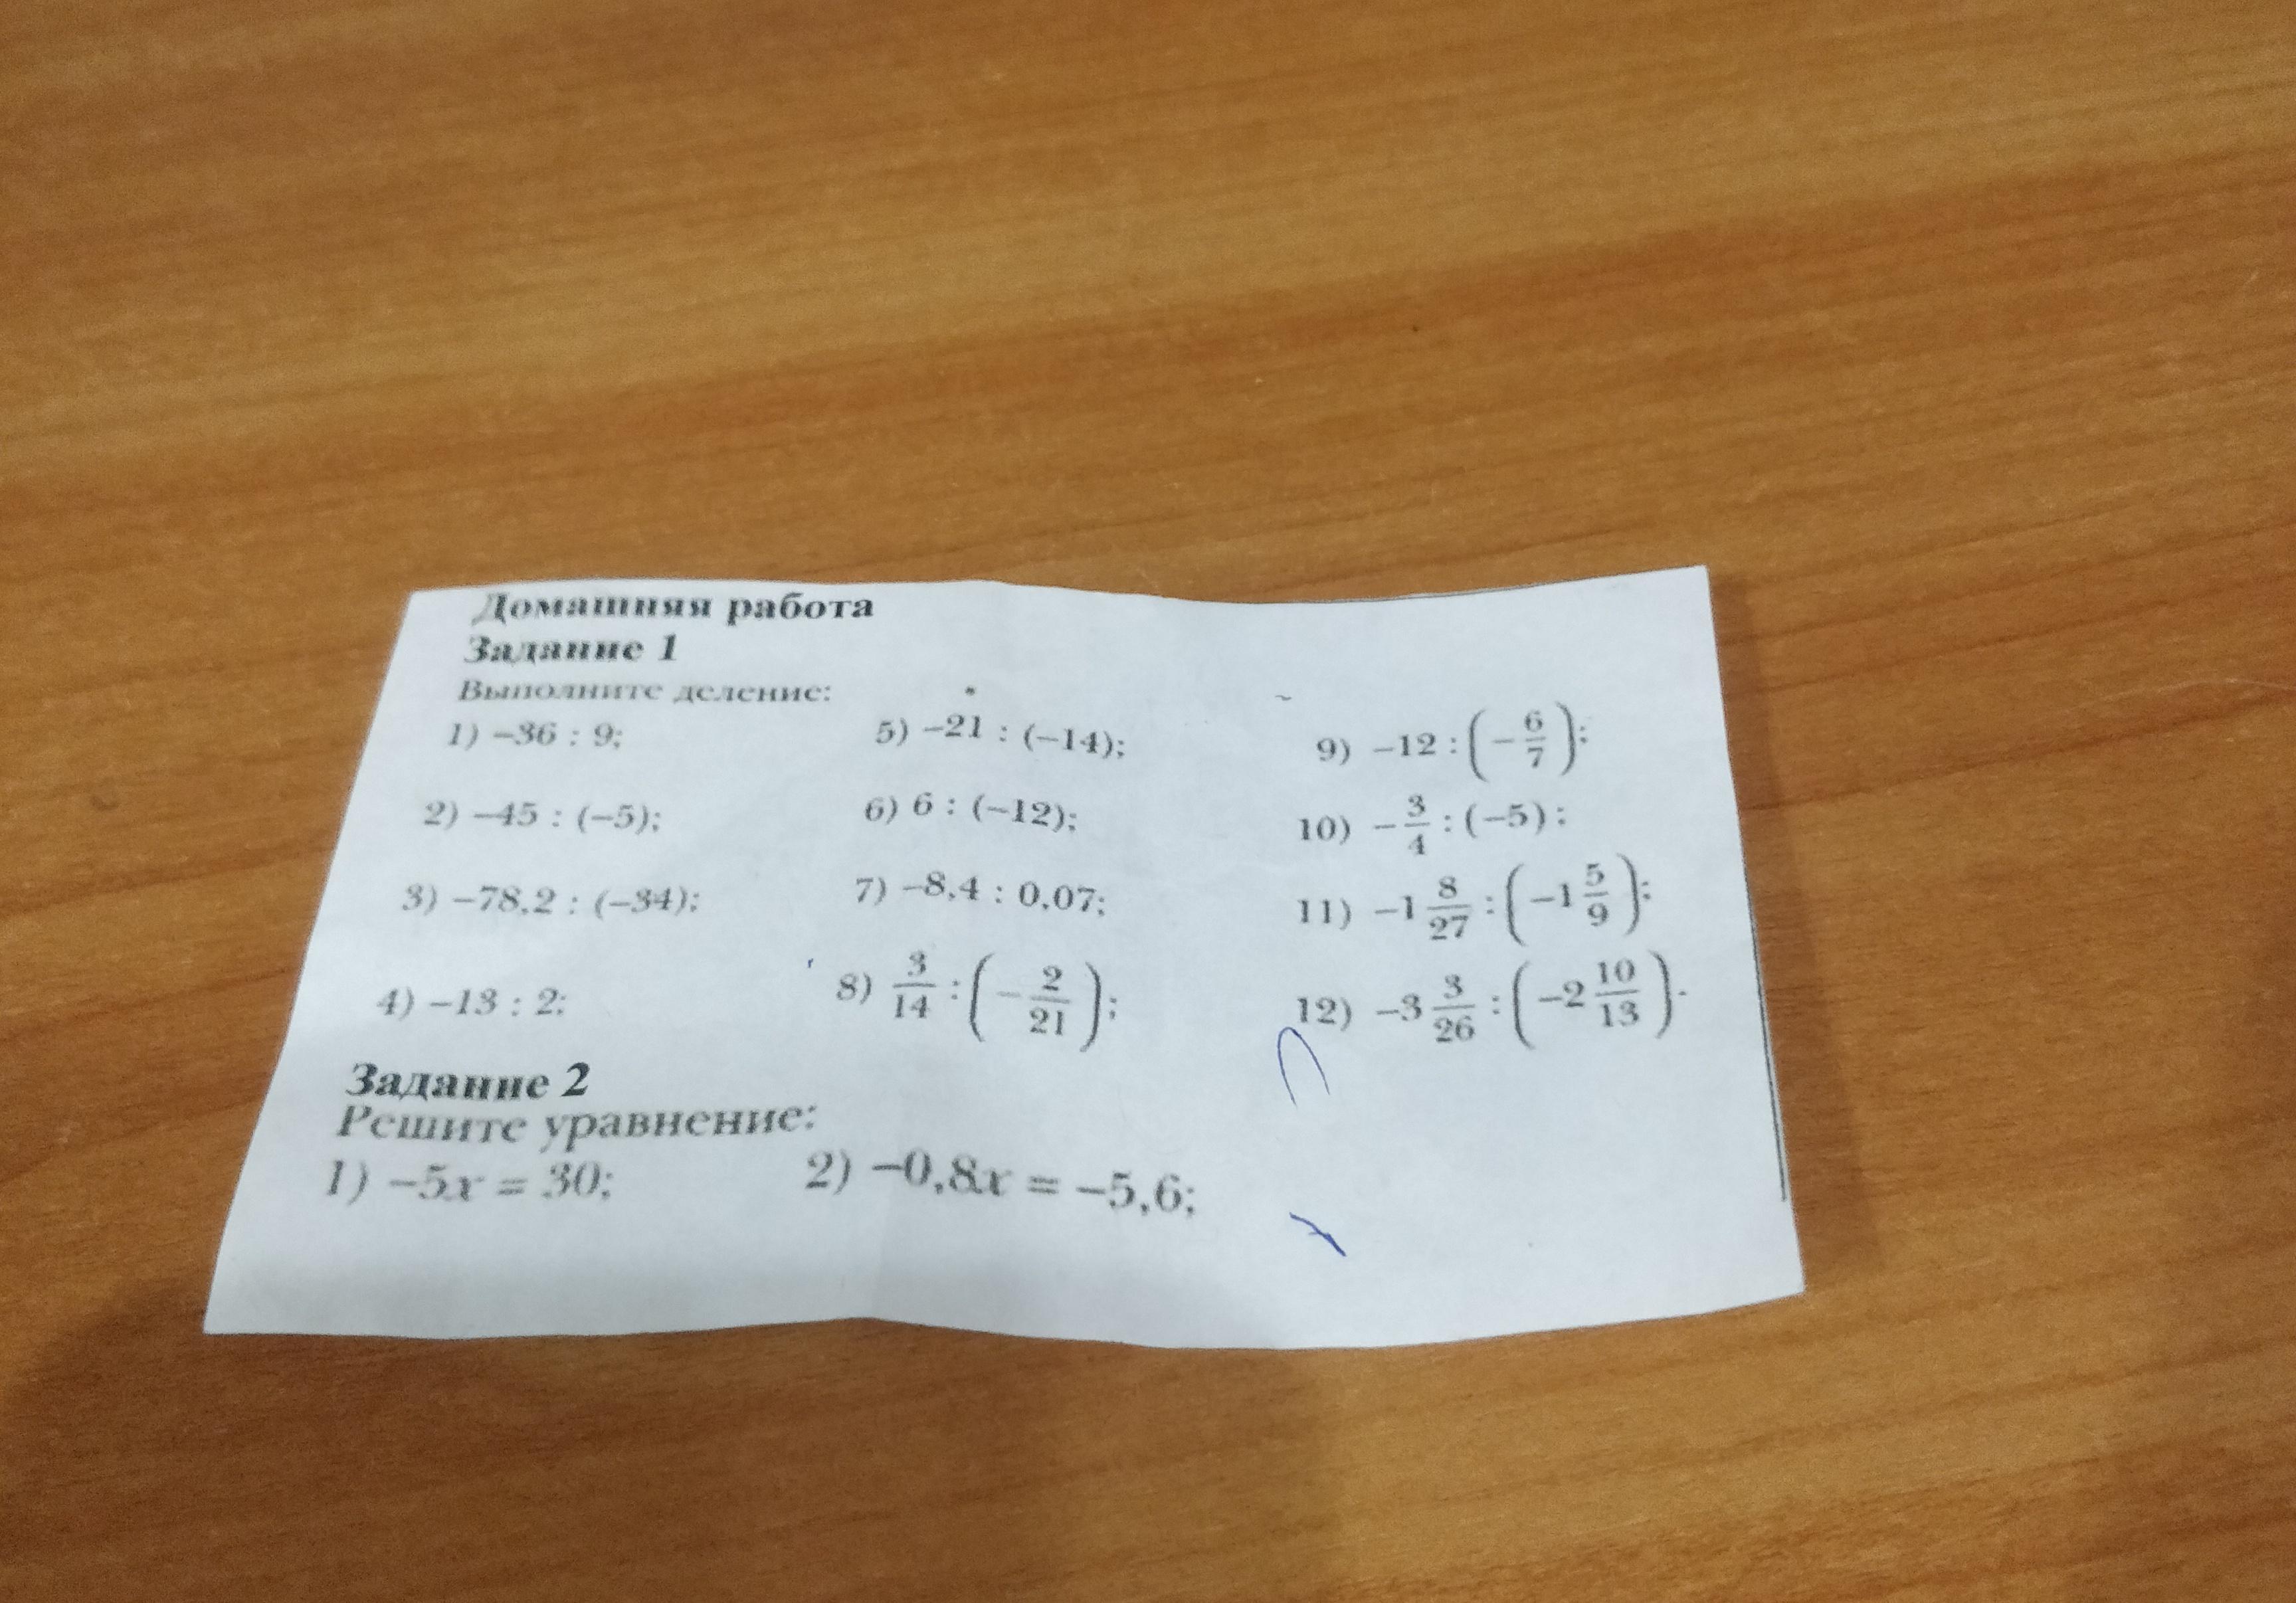 Домашняя работа
Задание 1
Выполните деление:
1) –36 : 9; 5) –21 : (–14); 9) –12 : (–6/7);
2) –45 : (–5); 6) 6 : (–12); 10) –3/4 : (–5);
3) –78,2 : (–34); 7) –8,4 : 0,07; 11) –1 8/27 : (–1 5/9);
4) –13 : 2; 8) 3/14 : (–2/21); 12) –3 3/26 : (–2 10/13).
Задание 2
Решите уравнение:
1) –5x = 30; 2) –0,8x = –5,6;